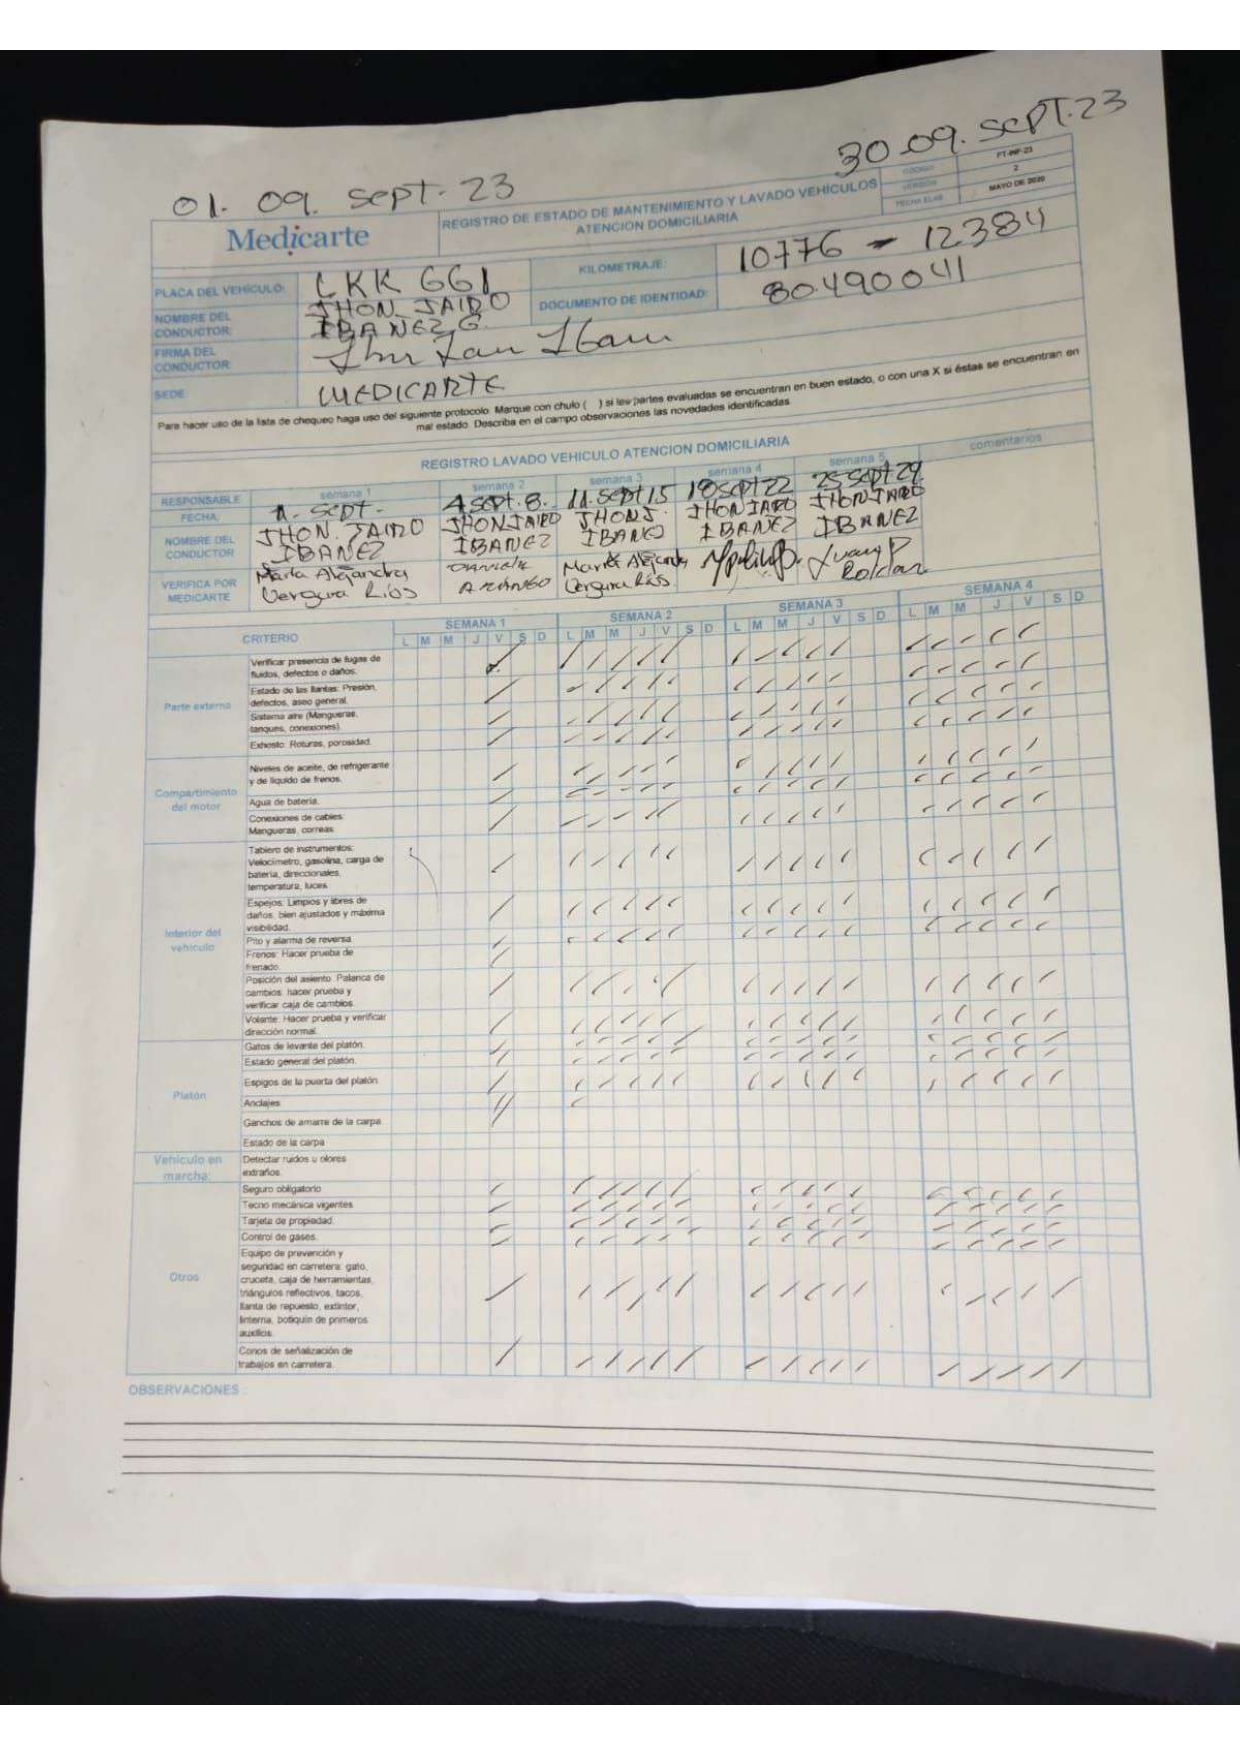 30-09. SEPT. 23
01. 09. SEPT. 23
Medicarte
REGISTRO DE ESTADO DE MANTENIMIENTO Y LAVADO VEHÍCULOS
ATENCION DOMICILIARIA
CODIGO FT-INF-23
VERSION 2
FECHA ELAB MAYO DE 2020
PLACA DEL VEHÍCULO: LKK 661 KILOMETRAJE: 10776 - 12384
NOMBRE DEL CONDUCTOR: JHON JAIRO IBANEZ G. DOCUMENTO DE IDENTIDAD: 80.490041
FIRMA DEL CONDUCTOR
SEDE: MEDICARTE
Para hacer uso de la lista de chequeo haga uso del siguiente protocolo. Marque con chulo ( ) si las partes evaluadas se encuentran en buen estado, o con una X si éstas se encuentran en
mal estado. Describa en el campo observaciones las novedades identificadas
REGISTRO LAVADO VEHICULO ATENCION DOMICILIARIA
RESPONSABLE semana 1 semana 2 semana 3 semana 4 semana 5 comentarios
FECHA 1. SEPT- 4 SEPT. 8. 11. SEPT 15 18 SEPT 22 25 SEPT. 29
NOMBRE DEL CONDUCTOR JHON. JAIRO IBANEZ JHON JAIRO IBANEZ JHON J. IBANEZ JHON JAIRO IBANEZ JHON JAIRO IBANEZ
VERIFICA POR MEDICARTE María Alejandra Vergara Ríos Daniela ARANGO María Alejandra Vergara Ríos Juan P Roldan
CRITERIO SEMANA 1 SEMANA 2 SEMANA 3 SEMANA 4
L M M J V S D L M M J V S D L M M J V S D L M M J V S D
Parte externa
Verificar presencia de fugas de
fluidos, defectos o daños.
Estado de las llantas: Presión,
defectos, aseo general.
Sistema aire (Mangueras,
tanques, conexiones).
Exhosto: Roturas, porosidad.
Compartimiento
del motor
Niveles de aceite, de refrigerante
y de liquido de frenos.
Agua de batería.
Conexiones de cables:
Mangueras, correas
Interior del
vehículo
Tablero de instrumentos:
Velocímetro, gasolina, carga de
batería, direccionales,
temperatura, luces
Espejos: Limpios y libres de
daños, bien ajustados y máxima
visibilidad.
Pito y alarma de reversa.
Frenos: Hacer prueba de
frenado.
Posición del asiento. Palanca de
cambios: hacer prueba y
verificar caja de cambios.
Volante: Hacer prueba y verificar
dirección normal.
Platón
Gatos de levante del platón.
Estado general del platón.
Espigos de la puerta del platón
Anclajes
Ganchos de amarre de la carpa
Estado de la carpa
Vehículo en
marcha:
Detectar ruidos u olores
extraños.
Otros
Seguro obligatorio
Tecno mecánica vigentes
Tarjeta de propiedad.
Control de gases.
Equipo de prevención y
seguridad en carretera: gato,
cruceta, caja de herramientas,
triángulos reflectivos, tacos,
llanta de repuesto, extintor,
linterna, botiquín de primeros
auxilios.
Conos de señalización de
trabajos en carretera.
OBSERVACIONES :